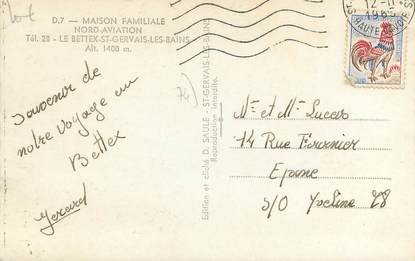 D.7 - MAISON FAMILIALE
NORD-AVIATION
Tél. 28 - LE BETTEX-ST-GERVAIS-LES-BAINS
Alt. 1400 m.
12-11
1965
HAUTE
Souvenir de
notre voyage au
Bettex
Gerard
74)
Edition et cliché D. SAULE - ST-GERVAIS-LES-BAINS
Reproduction interdite
Mr et Me Lucas
14 Rue Fournier
Epone
S/O Yveline 78